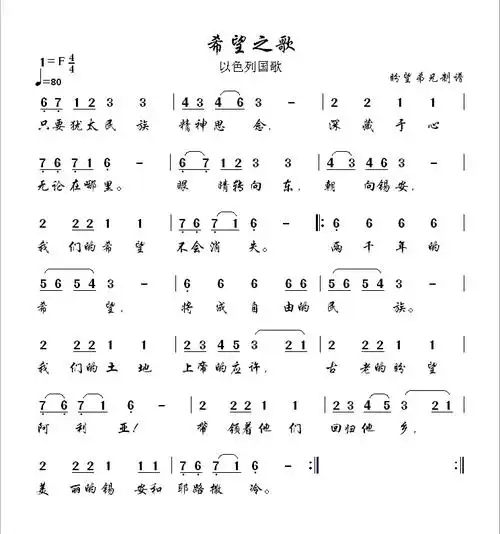 希望之歌
以色列国歌
1=F 4/4
♩=80
盼望弟兄制谱
6 7 1 2 3 3 | 4 3 4 6 3 - | 2 2 2 2 |
只要犹太民族 精神思念, 深藏于心
7 6 7 1 6 - | 6 6 7 3 3 | 4 3 4 6 3 - |
无论在哪里。 眼睛转向东, 朝向锡安,
2 2 2 1 1 | 7 6 7 1 6 - |: 6 6 6 6 |
我们的希望 不会消失。 两千年的
5 6 5 4 3 - | 6 6 6 6 6 | 5 6 5 4 3 - |
希望, 将成自由的民族。
2 2 2 1 1 | 2 3 4 5 3 2 1 | 2 2 2 1 1 |
我们的土地 上帝的应许, 古老的盼望
7 6 7 1 6 - | 2 2 2 1 1 | 2 3 4 5 3 2 1 |
阿利亚! 带领着他们 回归他乡,
2 2 2 1 1 | 7 6 7 1 6 - :|
美丽的锡安和耶路撒冷。